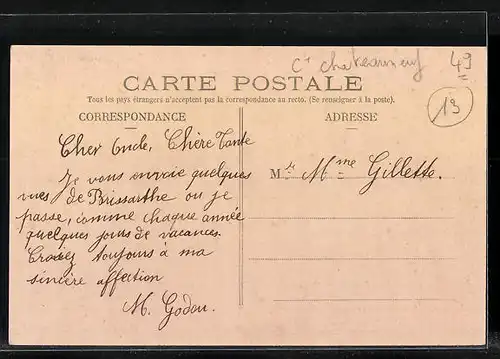 Ct Chateauneuf
49
CARTE POSTALE
Tous les pays étrangers n'acceptent pas la correspondance au recto. (Se renseigner à la poste).
13
CORRESPONDANCE
ADRESSE
Cher Oncle, Chère Tante
Je vous envoie quelques
vues de Brissarthe ou je
passe, comme chaque année
quelques jours de vacances.
Croyez toujours à ma
sincère affection
M. Godou.
Mr Mme Gillette.